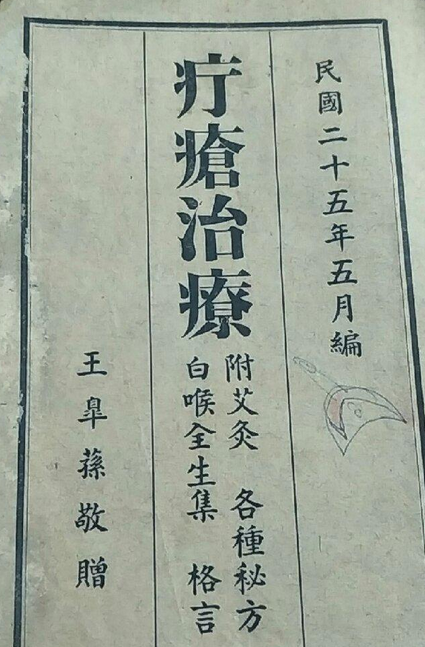 民國二十五年五月編
疔瘡治療
附艾灸 各種秘方
白喉全生集 格言
王皐蓀敬贈